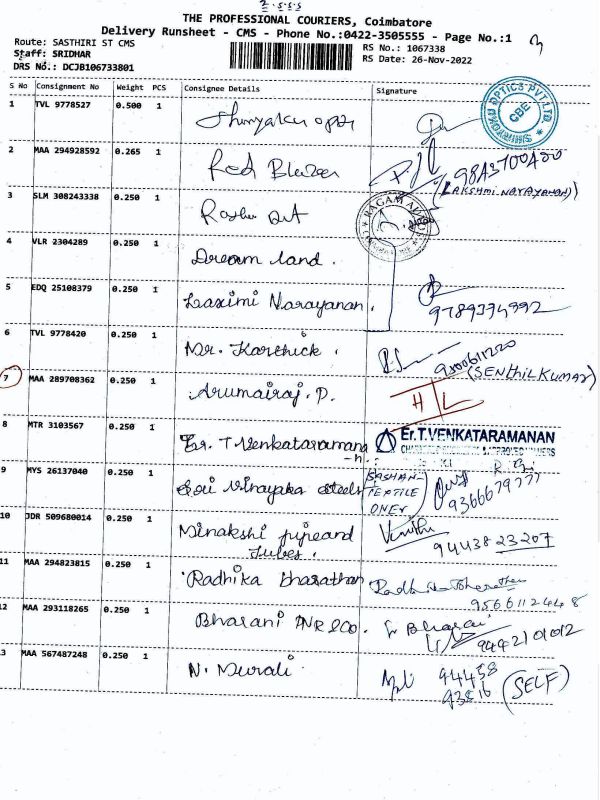 THE PROFESSIONAL COURIERS, Coimbatore
Delivery Runsheet - CMS - Phone No.:0422-3505555 - Page No.:1
Route: SASTHIRI ST CMS
Staff: SRIDHAR
DRS No.: DCJB106733801
RS No.: 1067338
RS Date: 26-Nov-2022
S No Consignment No Weight PCS Consignee Details Signature
1 TVL 9778527 0.500 1
SHRIYALKU OPTICS PVT.LTD. CBE
2 MAA 294928592 0.265 1 Red Blazer
(LAKSHMI NARAYANAN)
3 SLM 308243338 0.250 1
RAGAM
4 VLR 2304289 0.250 1 Dream land.
5 EDQ 25108379 0.250 1 Laximi Narayanan.
9789374992
6 TVL 9778420 0.250 1 Mr. Karthick.
9500611220
(SENTHILKUMAR)
7 MAA 289708362 0.250 1 Arumairaj. P.
8 MTR 3103567 0.250 1 Er. T Venkataramana
-n.
Er.T.VENKATARAMANAN
9 MYS 26137040 0.250 1 Sri Vinayaka steels
TEXTILE
9366679777
10 JDR 509680014 0.250 1 Minakshi pipe and
tubes.
94438 23207
11 MAA 294823815 0.250 1 Radhika bharathan
Radhika Bharathan
9566112448
12 MAA 293118265 0.250 1 Bharani
Bharani
9442101012
3 MAA 567487248 0.250 1 N. Murali
94438
(SELF)